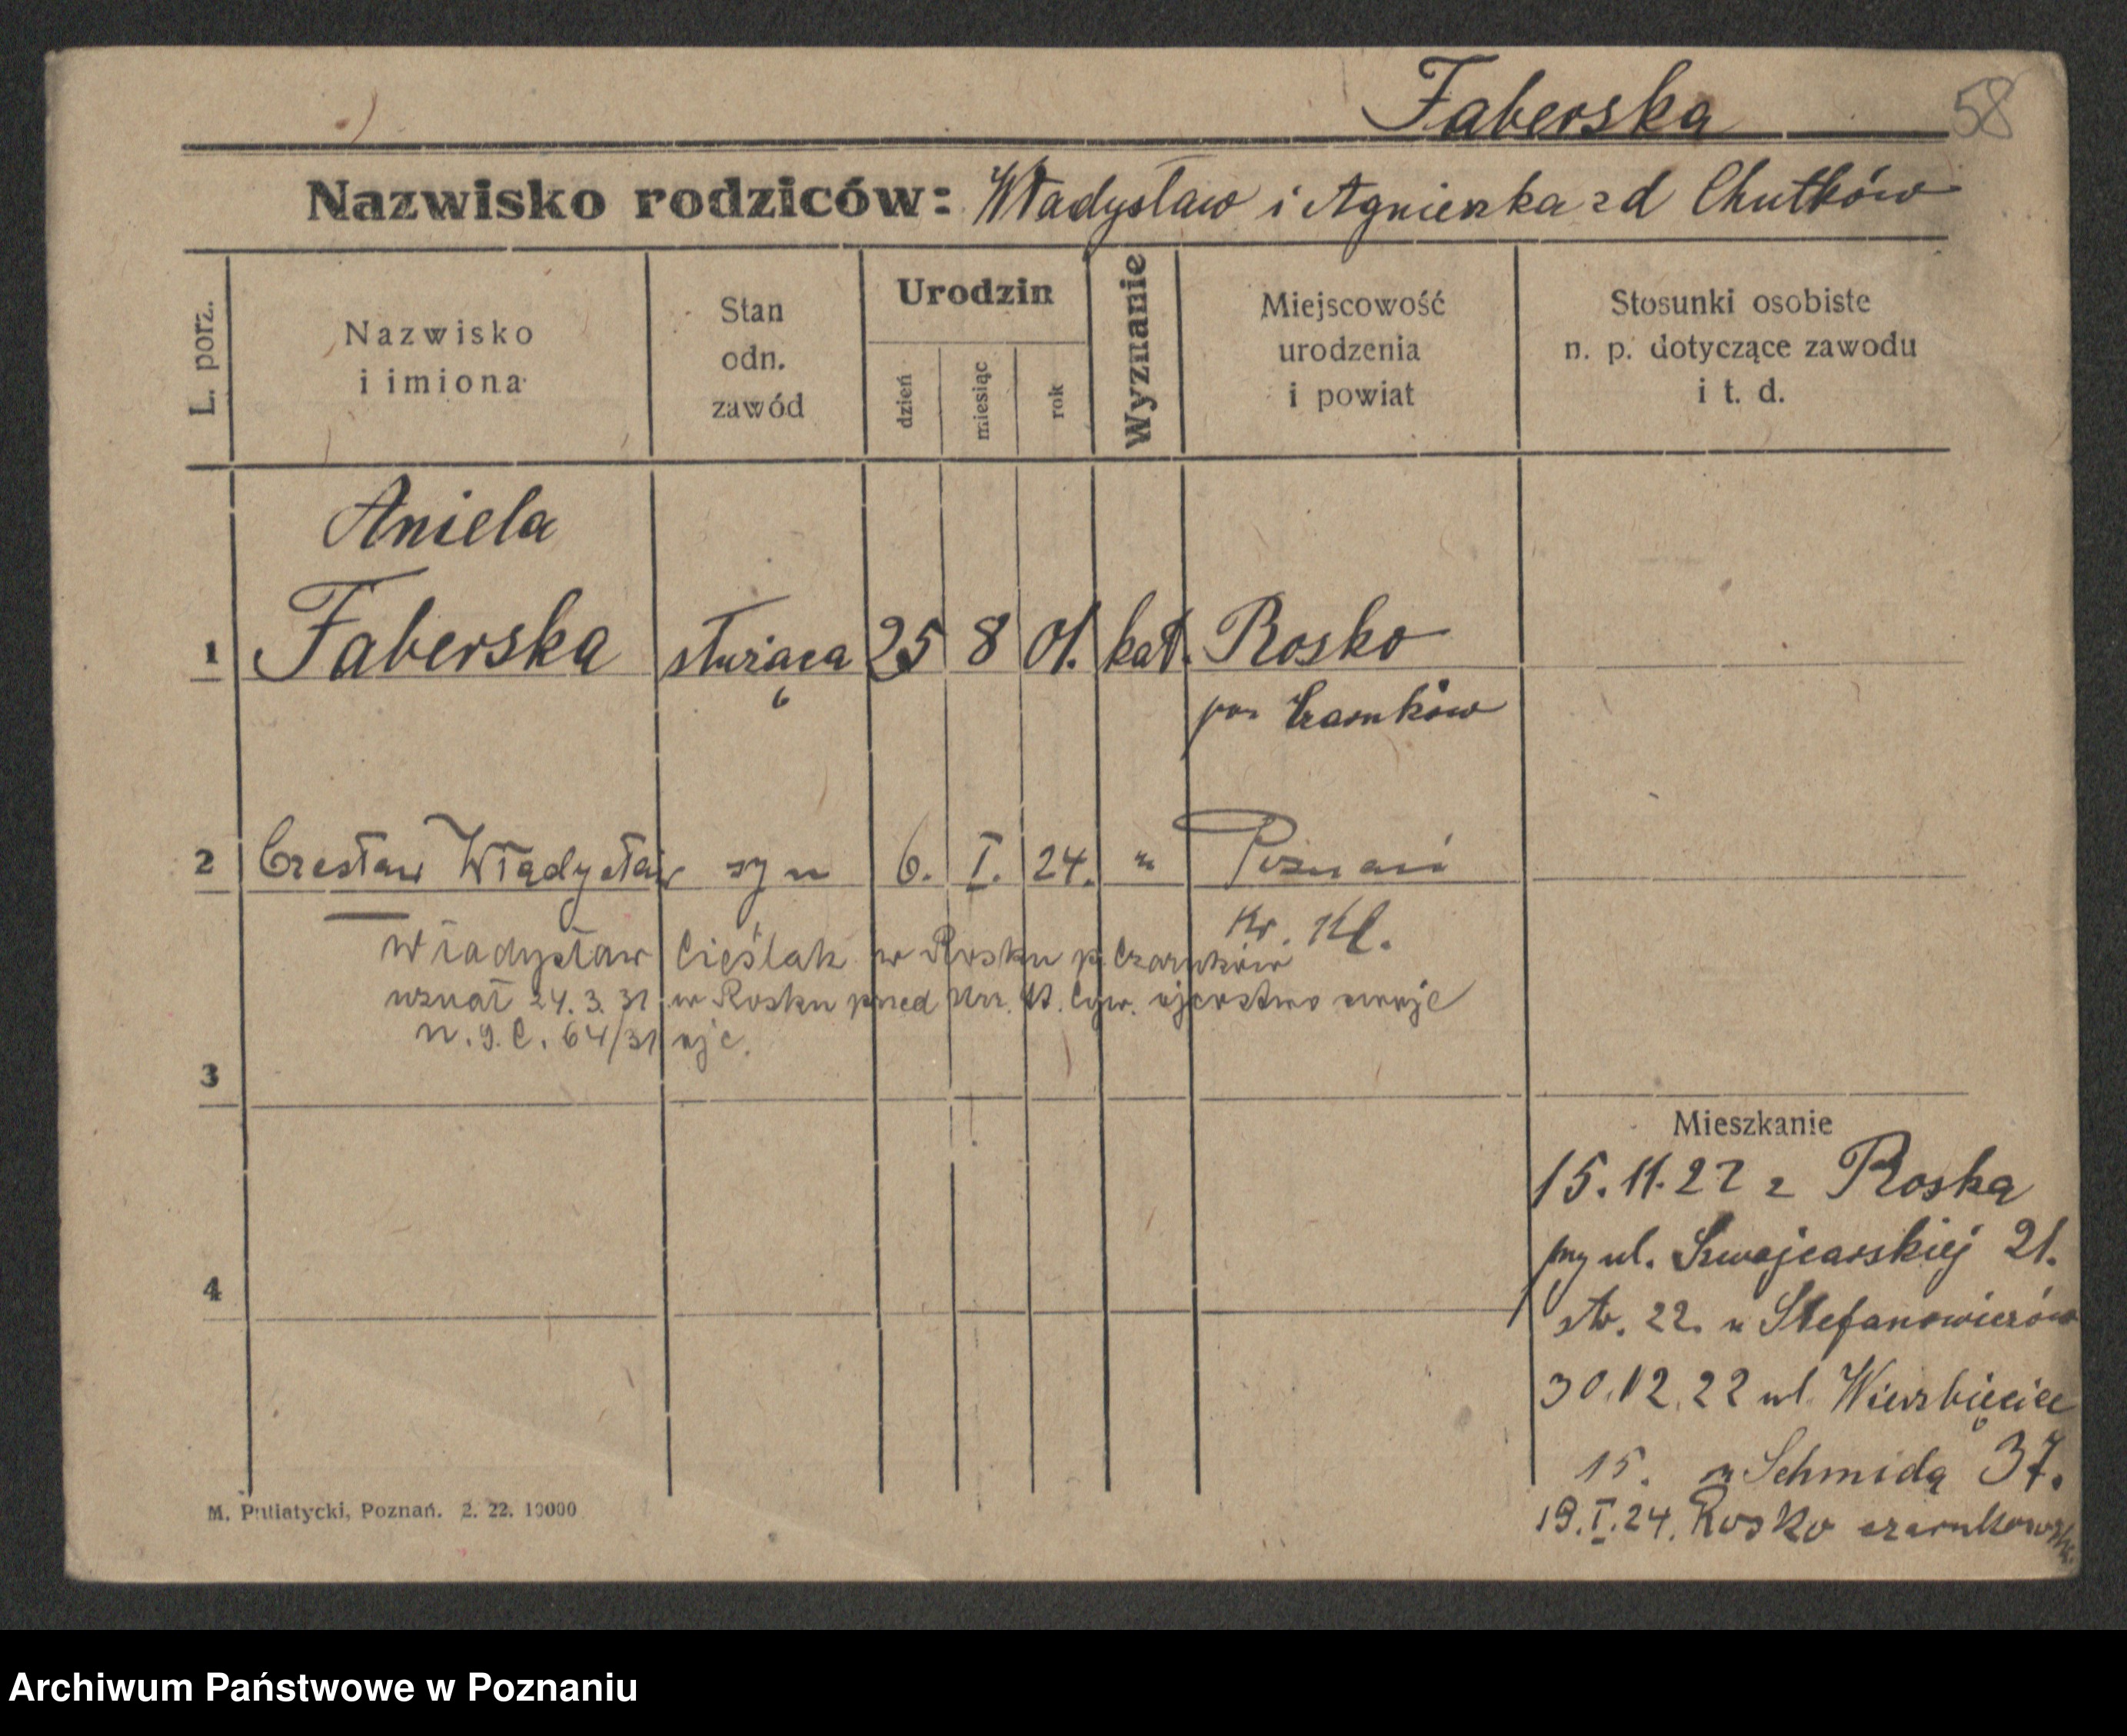 Faberska
58
Nazwisko rodziców: Władysław i Agnieszka zd Chutków
L. porz.
Nazwisko i imiona
Stan odn. zawód
Urodzin
dzień
miesiąc
rok
Wyznanie
Miejscowość urodzenia i powiat
Stosunki osobiste n. p. dotyczące zawodu i t. d.
Aniela
1 Faberska służąca 25 8 01. kat. Rosko
pow Czarnków
2 Czesław Władysław syn 6. I. 24. " Poznań
Kr. Kl.
Władysław Cieślak w Rosku p. Czarnków
uznał 24.3.31 w Rosku przed Urz. St. Cyw. ojcostwo swoje
64/31
3
Mieszkanie
15.11.22 z Roska
przy ul. Szwajcarskiej 21.
str. 22. u Stefanowiczów
4
30.12.22 ul. Wierzbięcice
15. u Schmidą 37.
19.I.24. Rosko czarnkowski
M. Putiatycki, Poznań. 2. 22. 10000
Archiwum Państwowe w Poznaniu